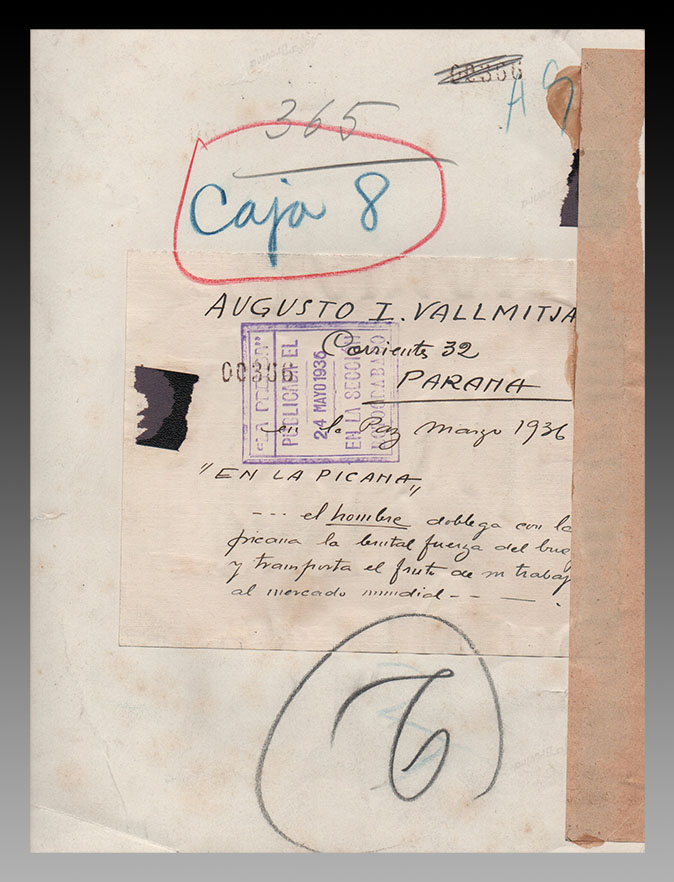 00366
A S
365
Caja 8
AUGUSTO I. VALLMITJA
Corrientes 32
00366
PARANA
en la Paz marzo 1936
"LA PRENSA"
PUBLICADA EL
24 MAYO 1936
EN LA SECCION
ROTOGRABADO
"EN LA PICANA"
--- el hombre doblega con la
picana la brutal fuerza del buey
y transporta el fruto de su trabaj
al mercado mundial -- — .